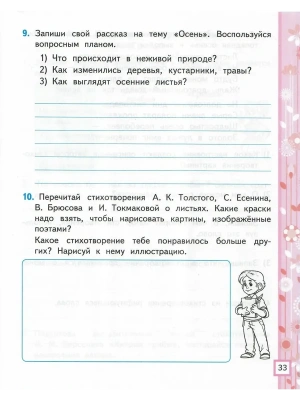 9. Запиши свой рассказ на тему «Осень». Воспользуйся
вопросным планом.
1) Что происходит в неживой природе?
2) Как изменились деревья, кустарники, травы?
3) Как выглядят осенние листья?
10. Перечитай стихотворения А. К. Толстого, С. Есенина,
В. Брюсова и И. Токмаковой о листьях. Какие краски
надо взять, чтобы нарисовать картины, изображённые
поэтами?
Какое стихотворение тебе понравилось больше дру-
гих? Нарисуй к нему иллюстрацию.
33